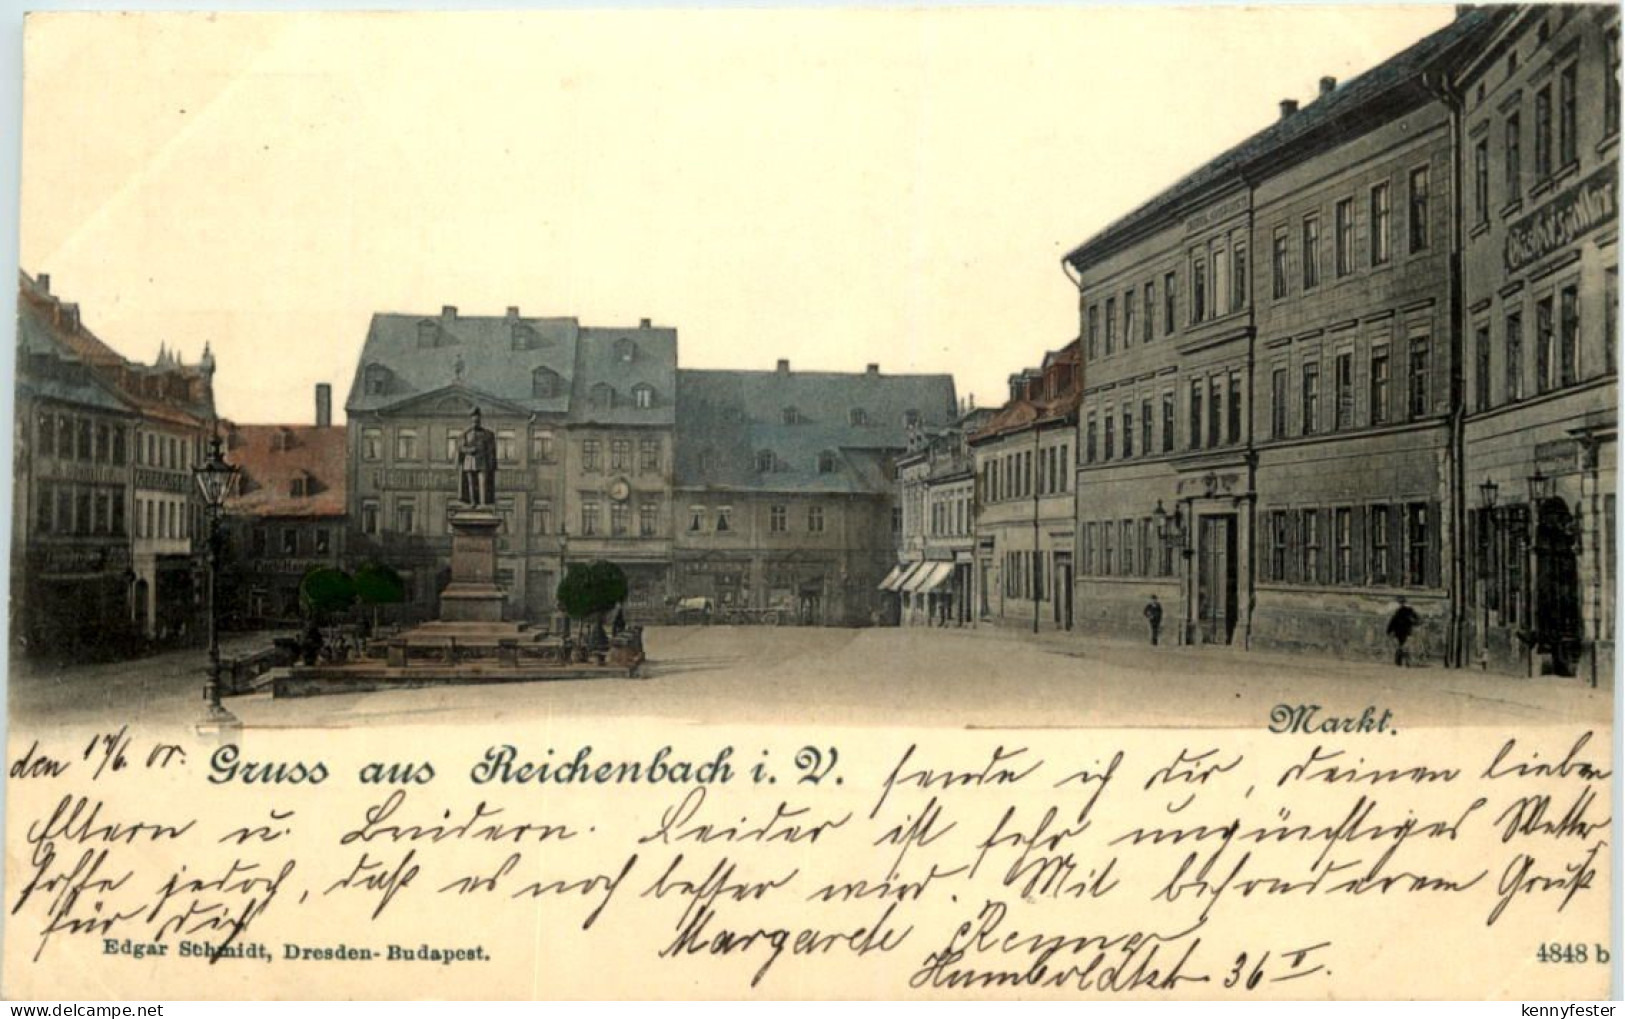 Markt.
den 17/6. 00. Gruss aus Reichenbach i. V. sende ich dir, deinen lieben
Eltern u. Brüdern. Leider ist sehr ungünstiges Wetter
hoffe jedoch, daß es noch besser wird. Mit besonderem Gruß
für dich
Margarete
Humboldtstr. 36 II.
Edgar Schmidt, Dresden-Budapest.
4848 b
www.delcampe.net
kennyfester